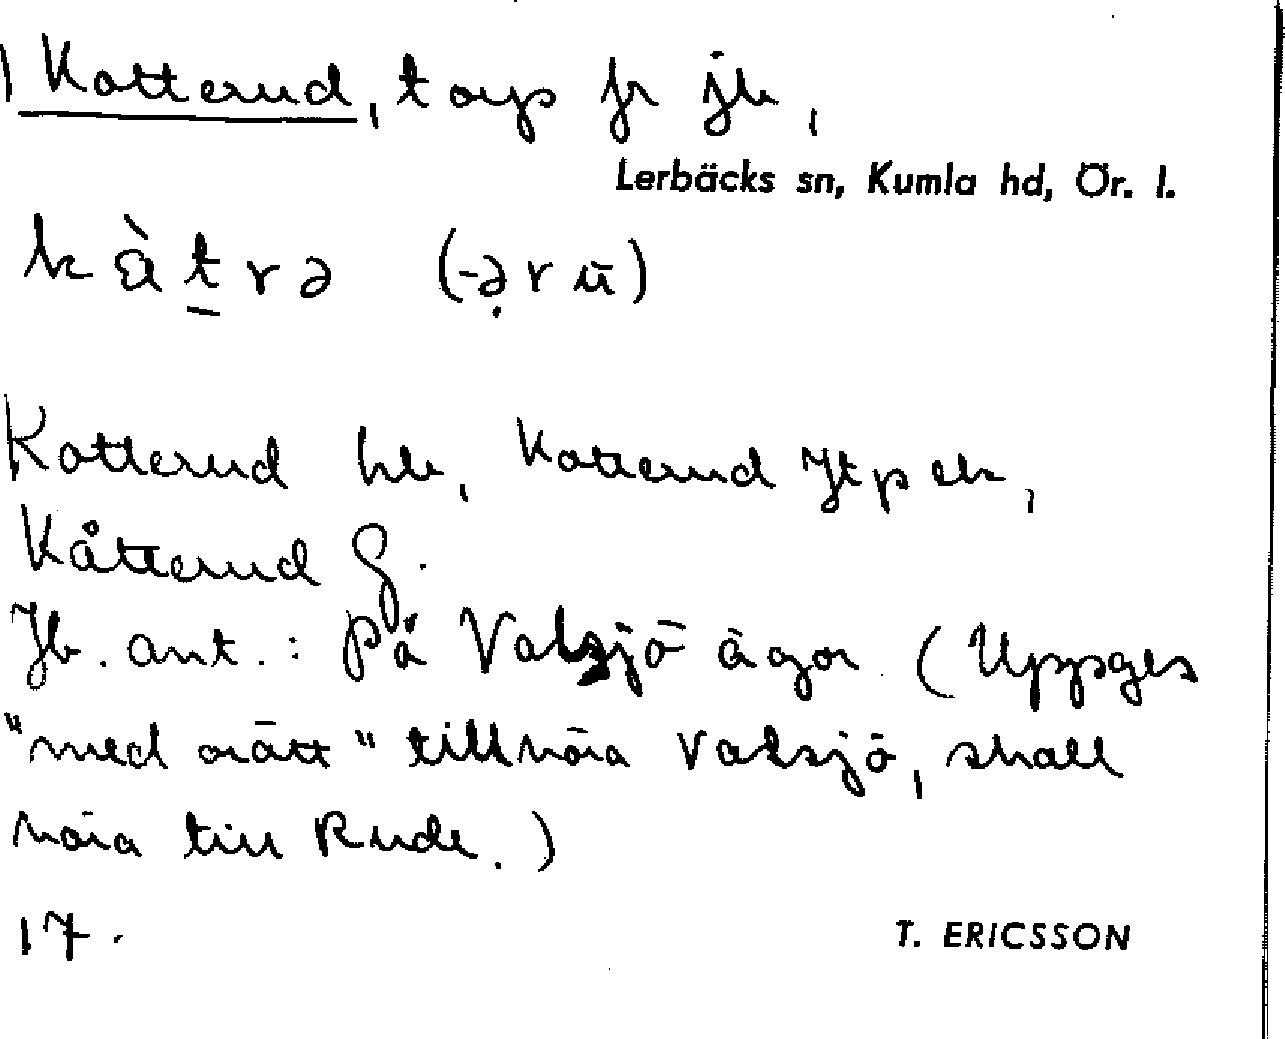 Kotterud, torp fr jb,
Lerbäcks sn, Kumla hd, Ör. l.
kàtrə (-ə̣rū)
Kotterud hk, Kotterud Jtp ek,
Kåtterud G.
Jb. ant.: På Valsjö ägor. (Uppges
"med orätt" tillhöra Valsjö, skall
höra till Rude.)
17.
T. ERICSSON